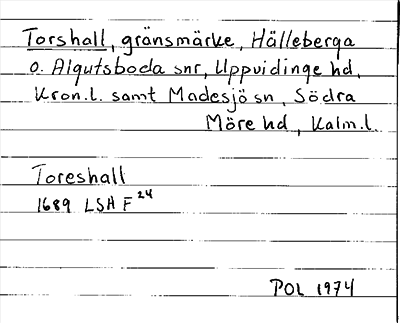 Torshall, gränsmärke, Hälleberga
o. Algutsboda snr, Uppvidinge hd,
Kron.l. samt Madesjö sn, Södra
Möre hd, Kalm.l.
Toreshall
1689 LSH F 24
POL 1974